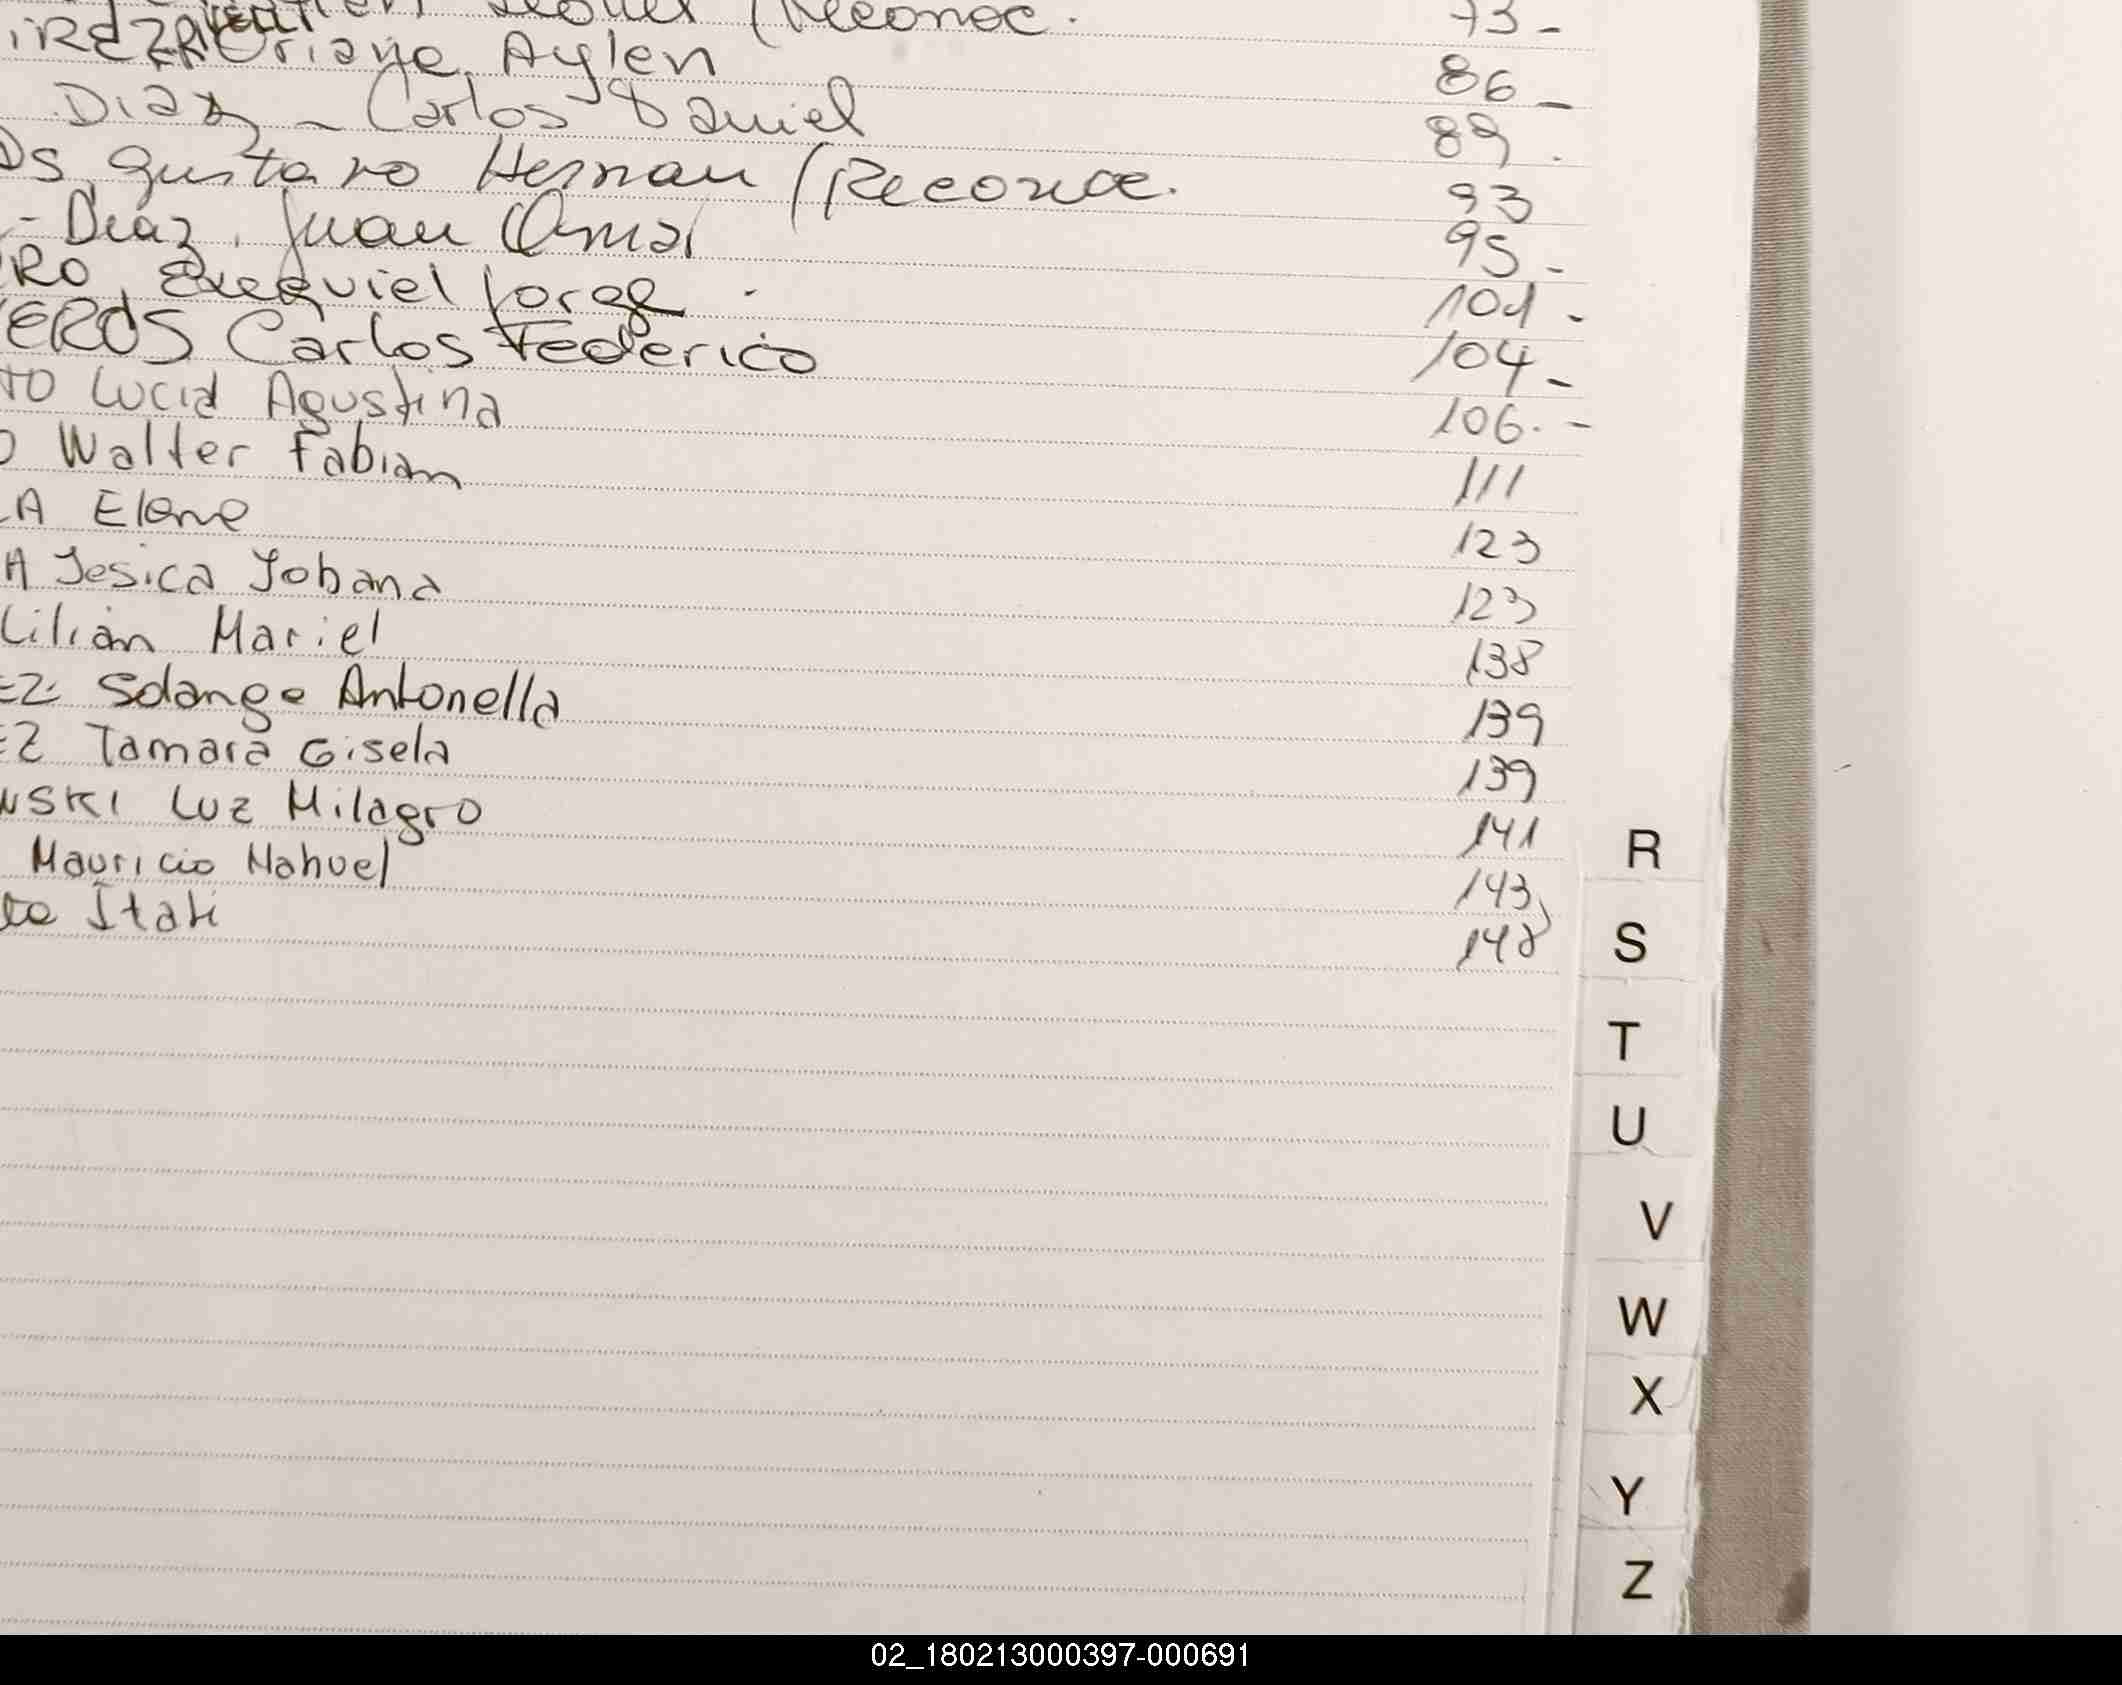 (Reconoc. 73 -
Oriana Aylen 86 -
Diaz - Carlos Daniel 89 .
Ds Gustavo Hernan (Reconoc. 93
- Diaz, Juan Omar 95 -
RO, Exequiel Jorge - 101 -
YEROS Carlos Federico 104 -
TO Lucia Agustina 106. -
O Walter Fabian 111
LA Elena 123
A Jesica Johana 123
Lilian Mariel 138
EZ Solange Antonella 139
EZ Tamara Gisela 139
WSKI Luz Milagro 141
Mauricio Nahuel 143
Itati 148
R
S
T
U
V
W
X
Y
Z
02_180213000397-000691